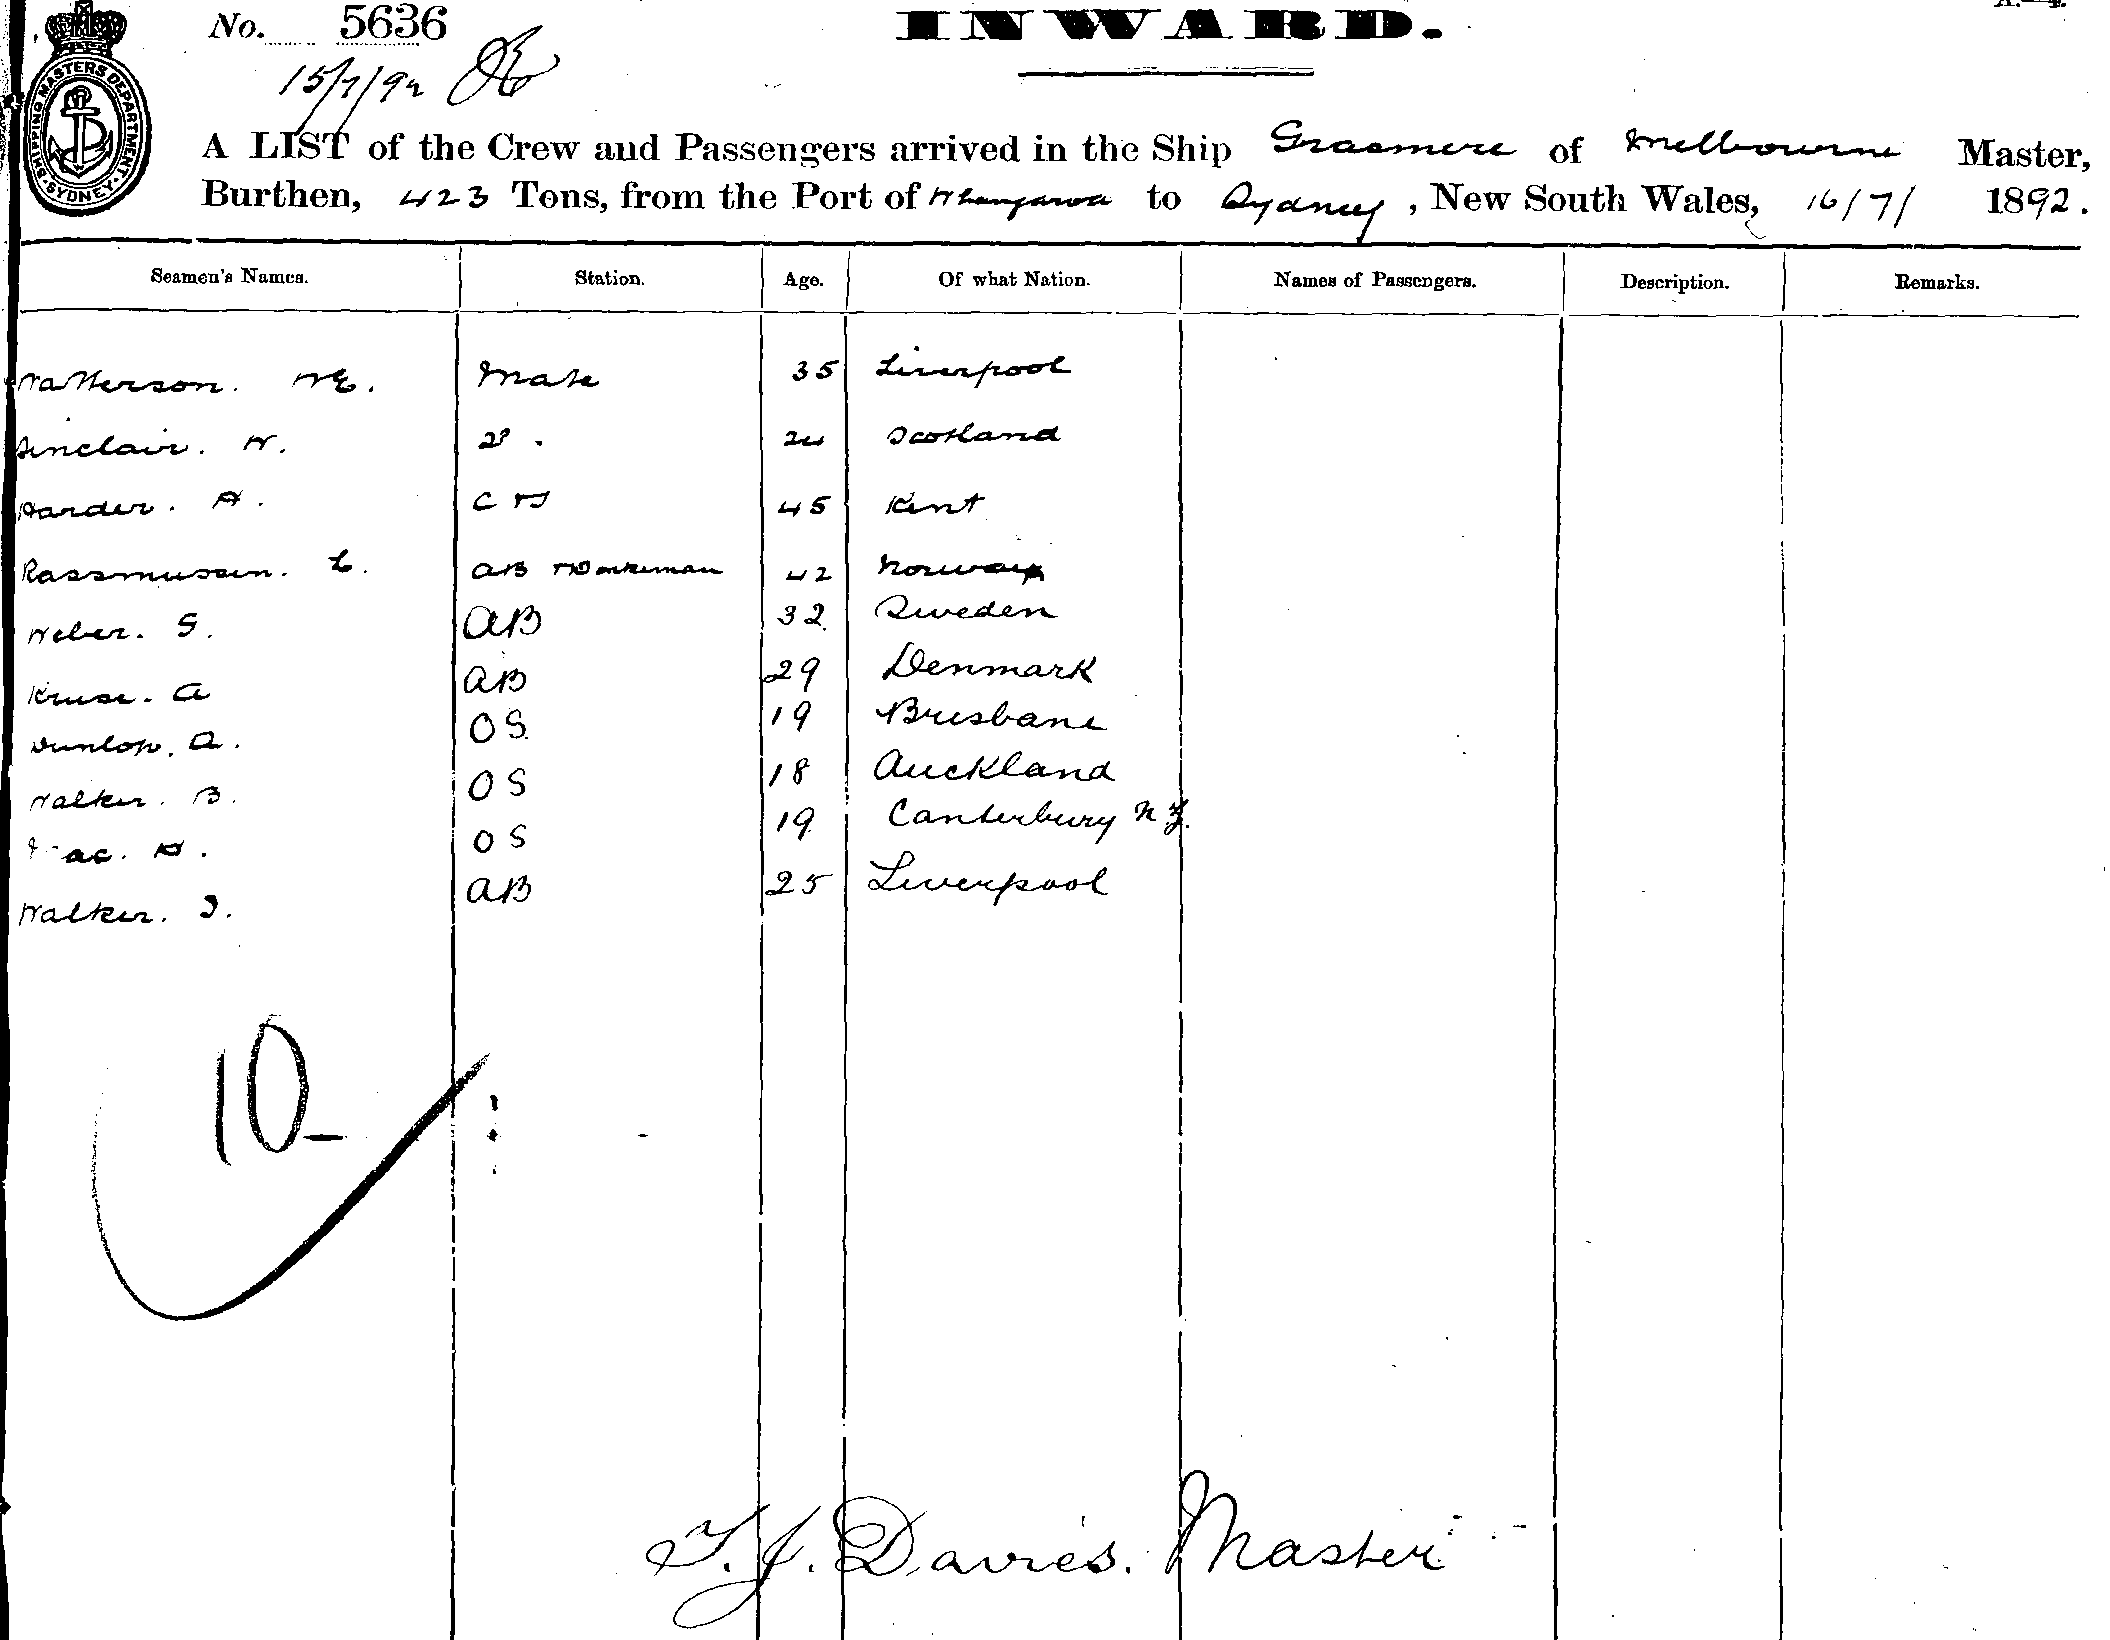 No. 5636
INWARD.
15/7/92
SHIPPING MASTERS DEPARTMENT SYDNEY
A LIST of the Crew and Passengers arrived in the Ship Grasmere of Melbourne Master,
Burthen, 423 Tons, from the Port of Whangaroa to Sydney, New South Wales, 16/7/ 1892.
Seamen's Names. Station. Age. Of what Nation. Names of Passengers. Description. Remarks.
Watterson. WE. Mate 35 Liverpool
Sinclair. W. 2º. 24 Scotland
Harder. H. C &S 45 Kent
Rassmussen. L. AB &Donkeman 42 Norway
Weber. S. AB 32 Sweden
Kruse. A AB 29 Denmark
Dunlop. A. OS 19 Brisbane
Walker. B. OS 18 Auckland
H. OS 19 Canterbury NZ.
Walker. J. AB 25 Liverpool
10-
T. J. Davies. Master